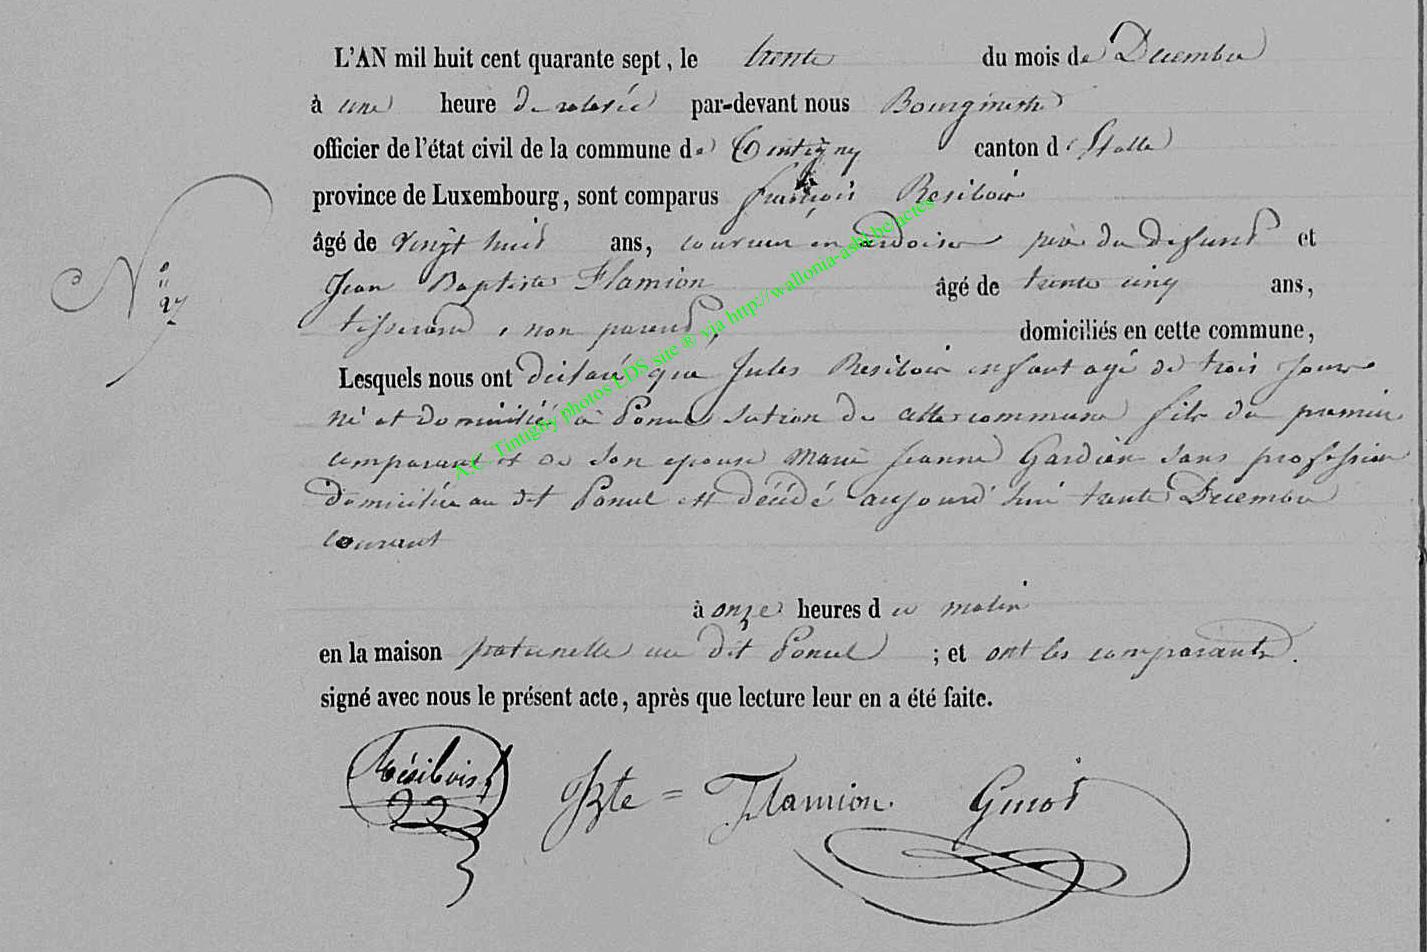 L'AN mil huit cent quarante sept, le trente du mois de Decembre
à une heure de relevée par-devant nous Bourgmestre
officier de l'état civil de la commune de Tintigny canton d'Etalle
province de Luxembourg, sont comparus françois Resibois
âgé de vingt huit ans, couvreur en ardoises père du defunt et
Jean Baptiste Flamion âgé de trente cinq ans,
tisserand, non parent, domiciliés en cette commune,
N° 27
Lesquels nous ont déclaré que Jules Resibois enfant agé de trois jours
né et domicilié à Ponsel section de cette commune fils du premier
comparant et de son epouse Marie Jeanne Gardien sans profession
domiciliée au dit Poncel est décédé aujourd'hui trente Decembre
courant
à onze heures du matin
en la maison paternelle au dit Poncel ; et ont les comparants
signé avec nous le présent acte, après que lecture leur en a été faite.
Résibois JBte = Flamion. Ginot
A.C. Tintigny photos LDS site ® via http://wallonia-asbl.be/actes